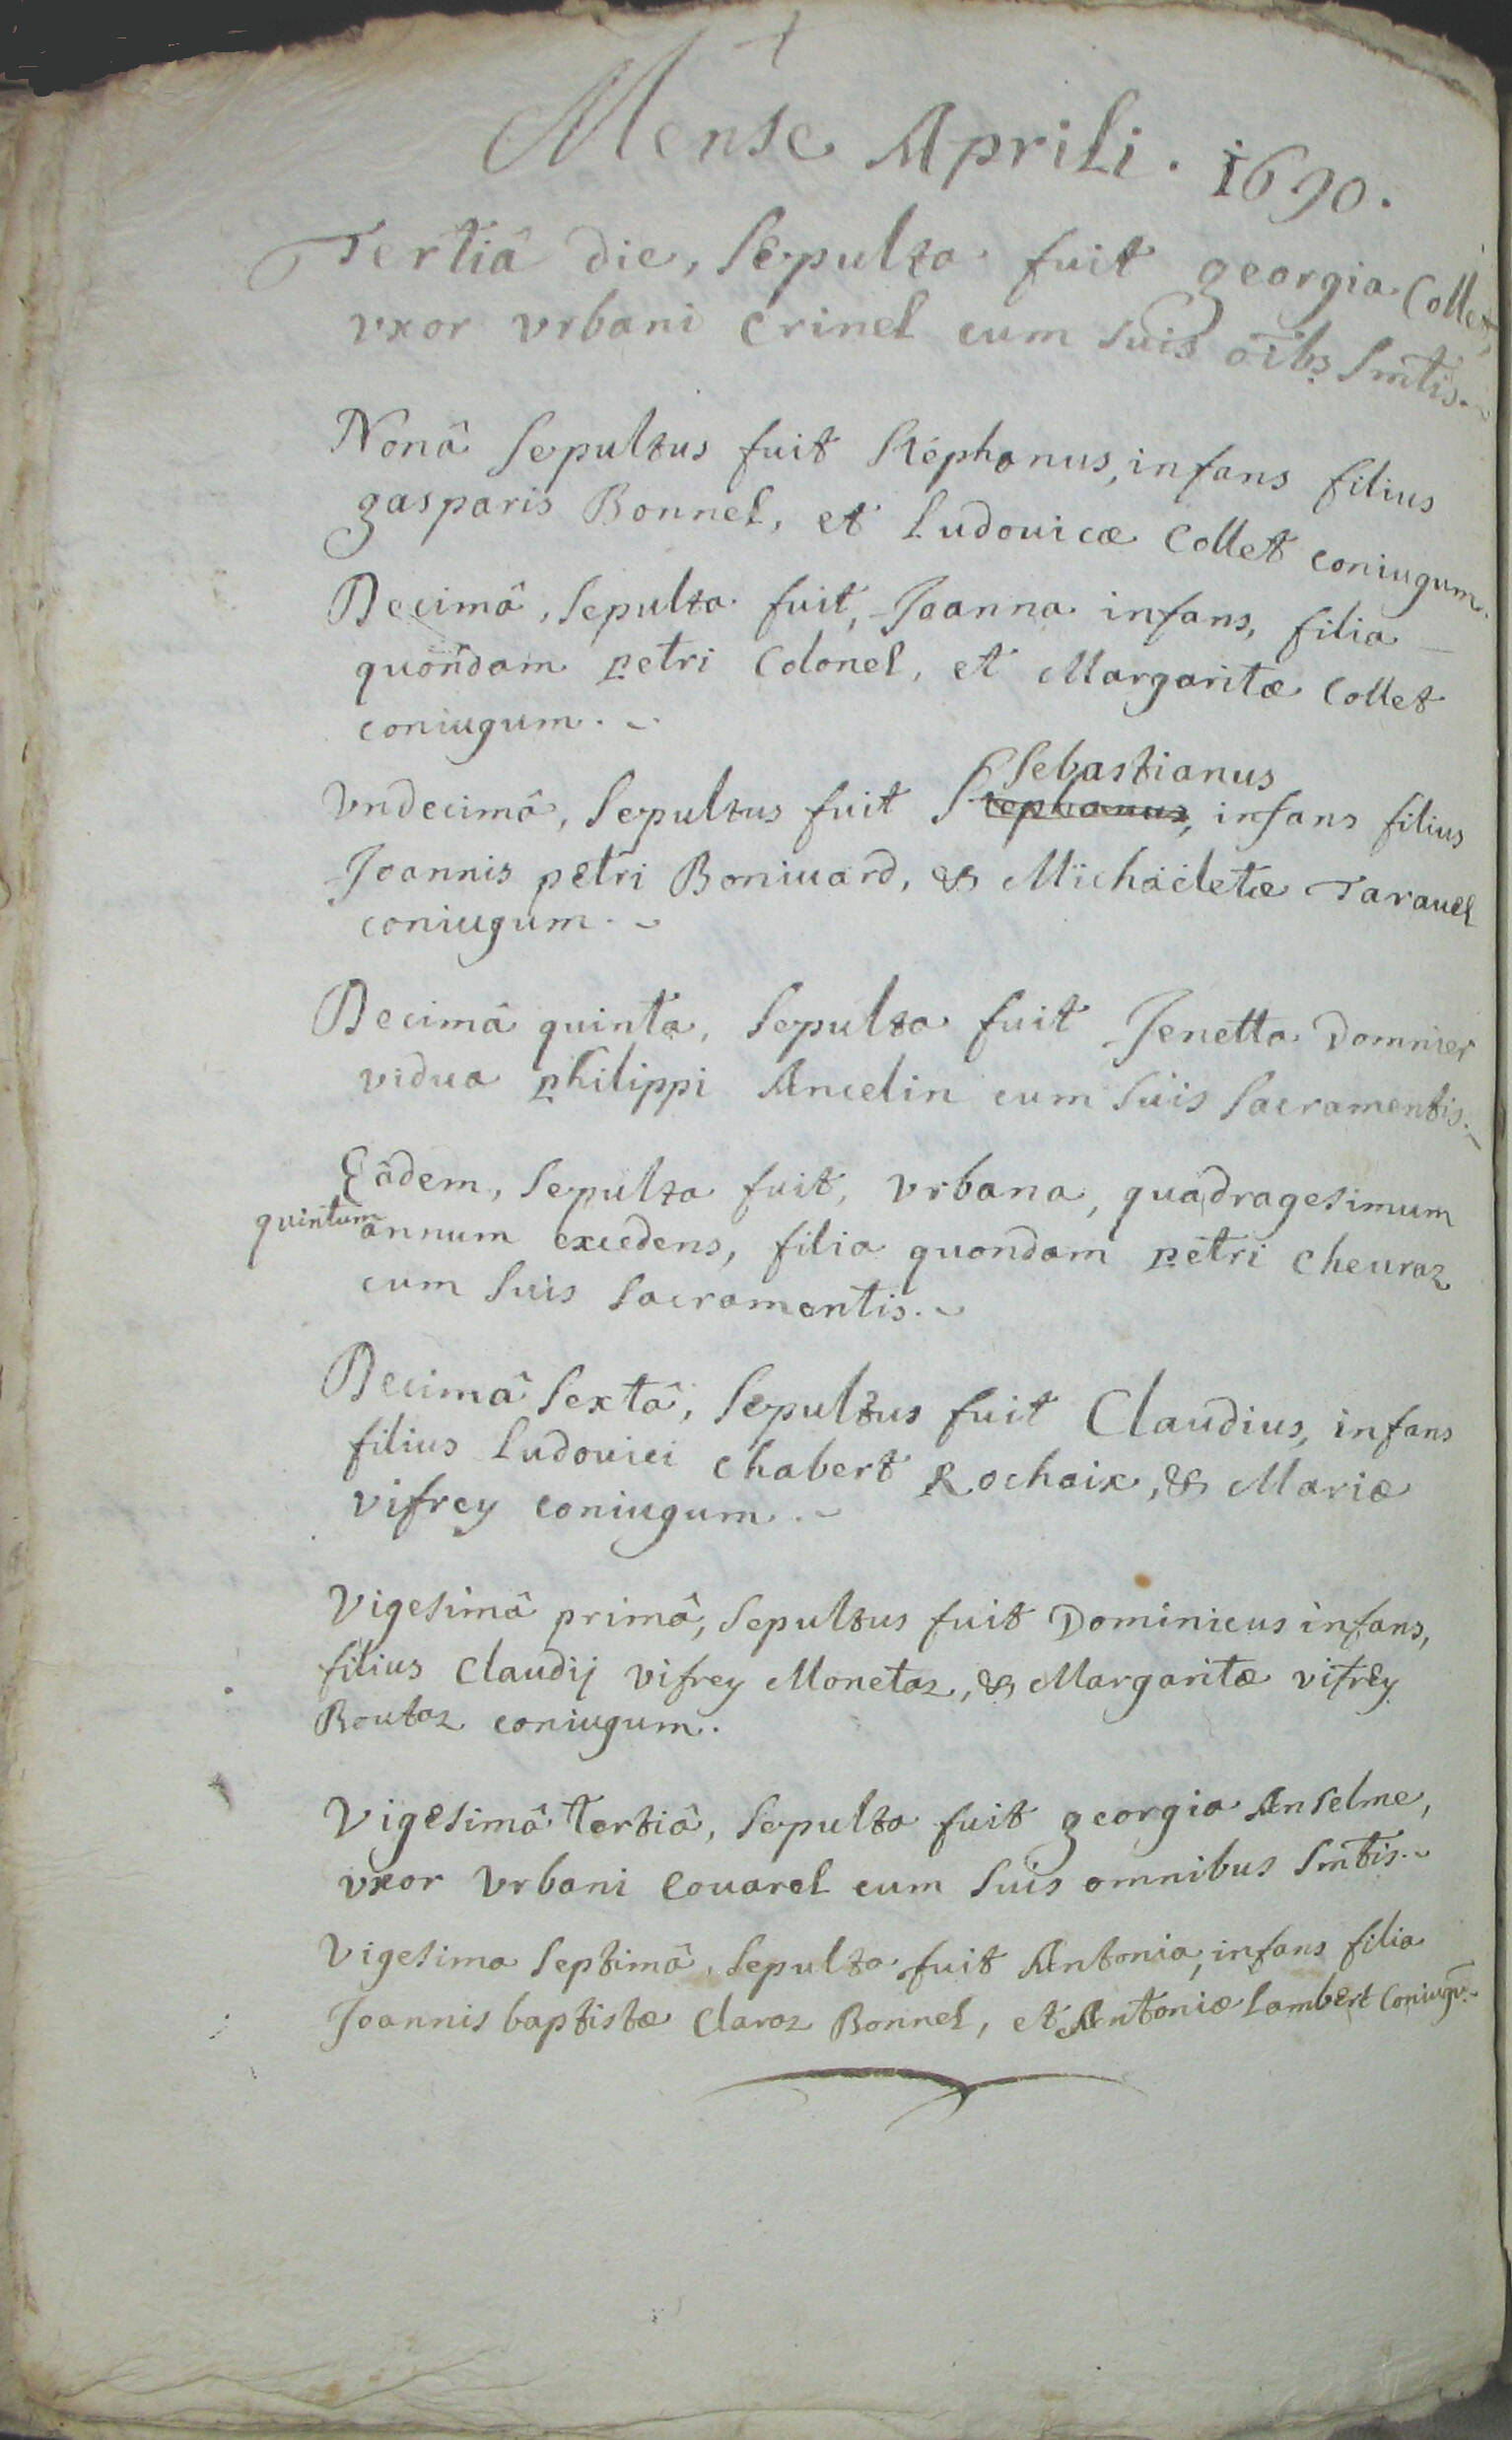 Mense Aprili. 1690.
Tertiâ die, Sepulta fuit georgia Collet,
vxor vrbani Crinel cum suis oībs Smtis.
Nonâ Sepultus fuit Stephanus, infans filius
gasparis Bonnel, et Ludouicæ Collet coniugum.
Decimâ, sepulta fuit, Joanna infans, filia
quondam petri Colonel, et Margaritæ Collet
coniugum.
Sebastianus
Vndecimâ, Sepultus fuit Stephanus, infans filius
Joannis petri Boniuard, & Michäeletæ Tarauel
coniugum.
Decimâ quinta, Sepulta fuit Jenetta Domnier
vidua philippi Ancelin cum suis sacramentis.
Eâdem, Sepulta fuit, vrbana, quadragesimum
quintum annum excedens, filia quondam petri Cheuraz
cum suis sacramentis.
Decimâ Sextâ, Sepultus fuit Claudius, infans
filius Ludouici Chabert Rochaix, & Mariæ
vifrey coniugum.
Vigesimâ primâ, Sepultus fuit Dominicus infans,
filius Claudij vifrey Monetaz, & Margaritæ vifrey
Boutaz coniugum.
Vigesimâ tertiâ, Sepulta fuit georgia Anselme,
vxor Vrbani Couarel cum suis omnibus Smtis.
Vigesima Septimâ, Sepulta fuit Antonia, infans filia
Joannis baptistæ Claraz Bonnel, et Antoniæ Lambert Coniugū.